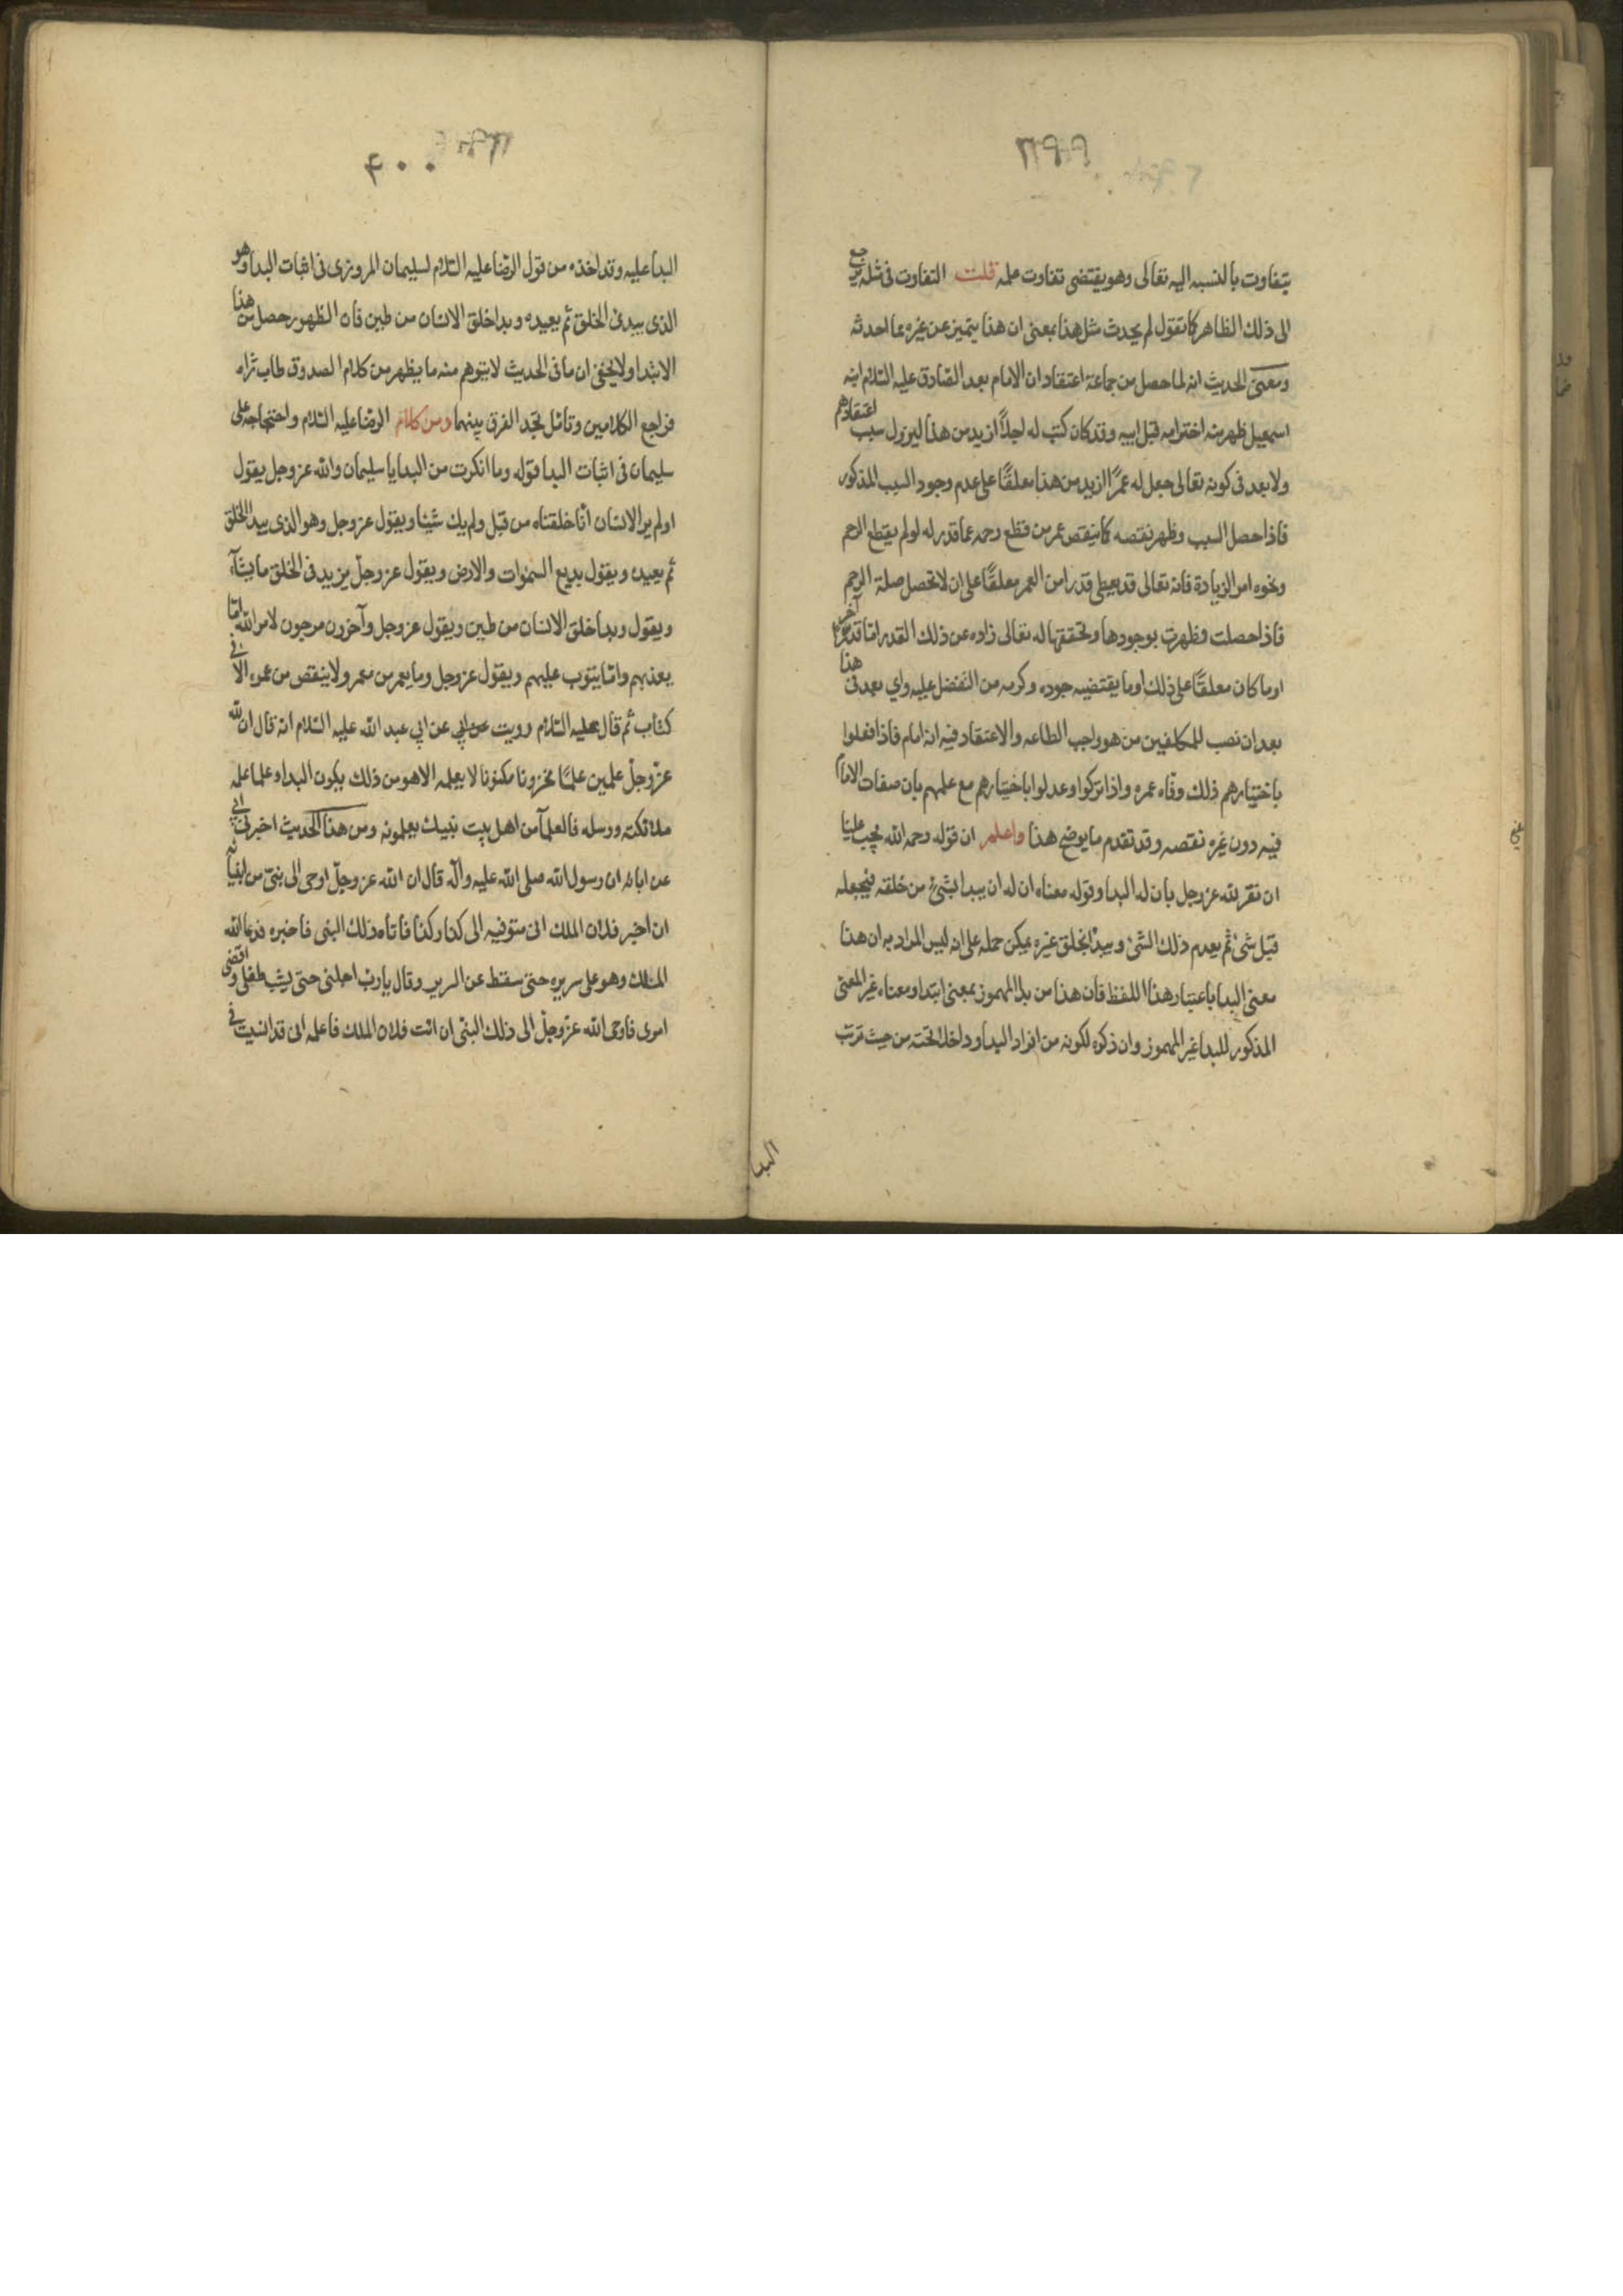 ٣٩٩
يتفاوت بالنسبه اليه تعالى وهو يقتضى تفاوت علمه قلت التفاوت فى مثله يرجع
الى ذلك الظاهر كما تقول لم يحدث مثل هذا بمعنى ان هذا يتميز عن غيره مما احدثه
ومعنى الحديث انه لما حصل من جماعة اعتقاد ان الامام بعد الصادق عليه السلام ابنه
اسمعيل ظهر منه اخترامه قبل ابيه وقد كان كتب له اجلاً ازيد من هذا ليزول سبب اعتقادهم
ولا بعد فى كونه تعالى جعل له عمرًا ازيد من هذا معلقًا على عدم وجود السبب المذكور
فاذا حصل السبب وظهر نقصه كما ينقص عمر من قطع رحمه عما قدر له لو لم يقطع الرحم
ونحوه امر الزيادة فانه تعالى قد يعطى قدرا من العمر معلقًا على ان لا تحصل صلة الرحم
فاذا حصلت وظهرت بوجودها وتحققها له تعالى زاده عن ذلك القدر اما قدرًا آخر
او ما كان معلقًا على ذلك او ما يقتضيه جوده وكرمه من التفضل عليه واي بعد فى هذا
بعد ان نصب للمكلفين من هو واجب الطاعه والاعتقاد فيه انه امام فاذا فعلوا
باختيارهم ذلك وفّاه عمره واذا تركوا وعدلوا باختيارهم مع علمهم بان صفات الامام
فيه دون غيره نقصه وقد تقدم ما يوضح هذا واعلم ان قوله رحمه الله يجب علينا
ان نقر لله عز وجل بان له البدا وقوله معناه ان له ان يبدا بشئ من خلقه فيجعله
قبل شئ ثم يعدم ذلك الشئ ويبدا بخلق غيره يمكن حمله على انه ليس المراد به ان هذا
معنى البدا باعتبار هذا اللفظ فان هذا من بدا المهموز بمعنى ابتدا ومعناه غير المعنى
المذكور للبدا غير المهموز وان ذكره لكونه من افراد البدا وداخلا تحته من حيث ترتب
البدا
٤٠٠
البدا عليه وقد اخذه من قول الرضا عليه السلام لسليمان المروزى فى اثبات البدا وهو
الذى يبدئ الخلق ثم يعيده وبدا خلق الانسان من طين فان الظهور حصل من هذا
الابتدا ولا يخفى ان ما فى الحديث لا يتوهم منه ما يظهر من كلام الصدوق طاب ثراه
فراجع الكلامين وتامّل تجد الفرق بينهما ومن كلام الرضا عليه السلام واحتجاجه على
سليمان فى اثبات البدا قوله وما انكرت من البدا يا سليمان والله عز وجل يقول
اولم ير الانسان انا خلقناه من قبل ولم يك شيئا ويقول عز وجل وهو الذى يبدا الخلق
ثم يعيده ويقول بديع السموات والارض ويقول عز وجلّ يزيد فى الخلق ما يشآء
ويقول وبدا خلق الانسان من طين ويقول عز وجل وآخرون مرجون لامر الله اما
يعذبهم واما يتوب عليهم ويقول عز وجل وما يعمر من معمر ولا ينقص من عمره الا فى
كتاب ثم قال عليه السلام رويت عن ابي عن ابي عبد الله عليه السلام انه قال ان لله
عز وجلّ علمين علمًا مخزونا مكنونا لا يعلمه الا هو من ذلك يكون البدا وعلما علمه
ملائكته ورسله فالعلمآ من اهل بيت نبيك يعلمونه ومن هذا الحديث اخبرنى ابي
عن ابائه ان رسول الله صلى الله عليه وآله قال ان الله عز وجلّ اوحى الى نبىّ من انبيائه
ان اخبر فلان الملك انى متوفيه الى كذا وكذا فاتاه ذلك النبى فاخبره فدعا الله
الملك وهو على سريره حتى سقط عن السرير وقال يا رب اجلنى حتى يشب طفلى واقضى
امرى فاوحى الله عز وجلّ الى ذلك النبى ان ائت فلان الملك فاعلمه انى قد انسيت فى